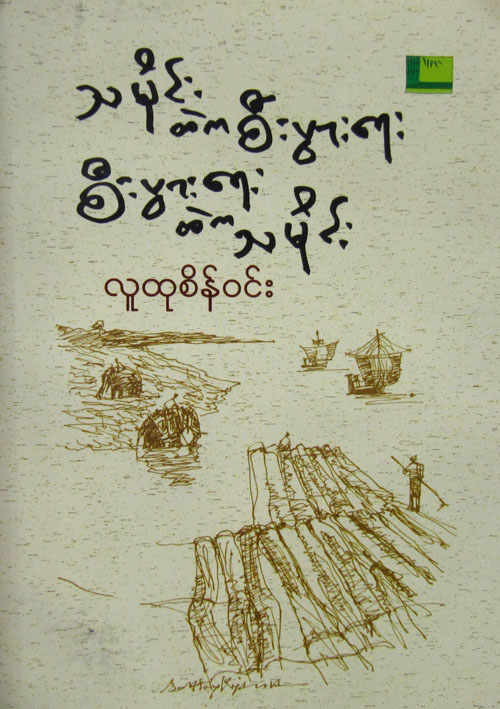 သမိုင်းထဲကစီးပွားရေး
စီးပွားရေးထဲကသမိုင်း
လူထုစိန်ဝင်း